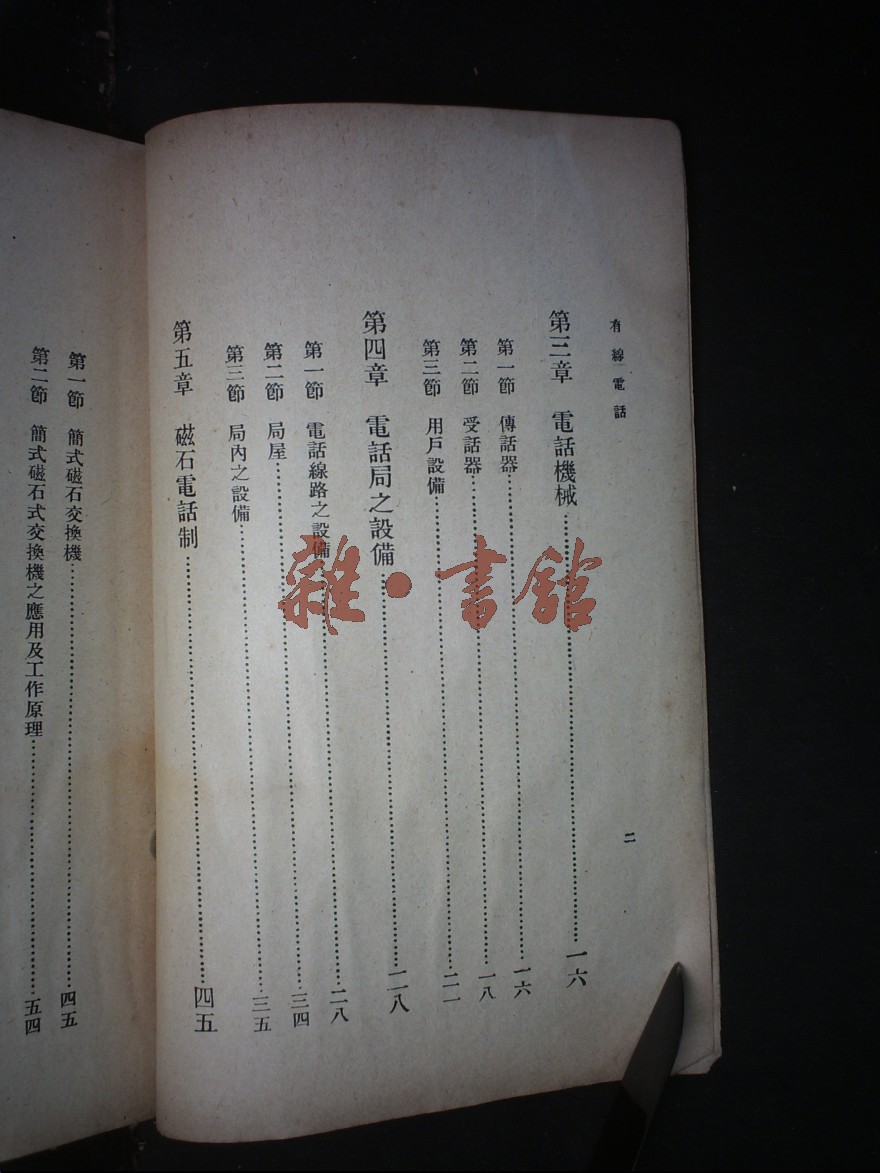 有線電話
二
第三章　電話機械……一六
第一節　傳話器……一六
第二節　受話器……一八
第三節　用戶設備……二一
第四章　電話局之設備……二八
第一節　電話線路之設備……二八
第二節　局屋……三四
第三節　局內之設備……三五
第五章　磁石電話制……四五
第一節　簡式磁石交換機……四五
第二節　簡式磁石式交換機之應用及工作原理……五四
雜·書館